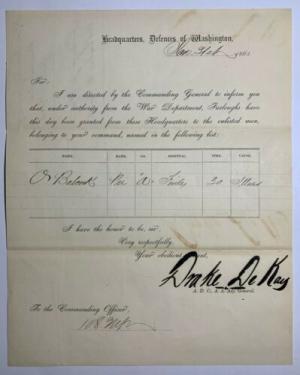 Headquarters, Defences of Washington,
186
Sir:
I am directed by the Commanding General to inform you
that, under authority from the War Department, Furloughs have
this day been granted from these Headquarters to the enlisted men,
belonging to your command, named in the following list:
NAME. RANK. CO. HOSPITAL. TIME. CAUSE.
O Babcock 20
I have the honor to be, sir,
Very respectfully,
Your obedient servant,
Drake De Kay
A. D. C., A. A. Adj. General.
To the Commanding Officer,
108 N.Y.